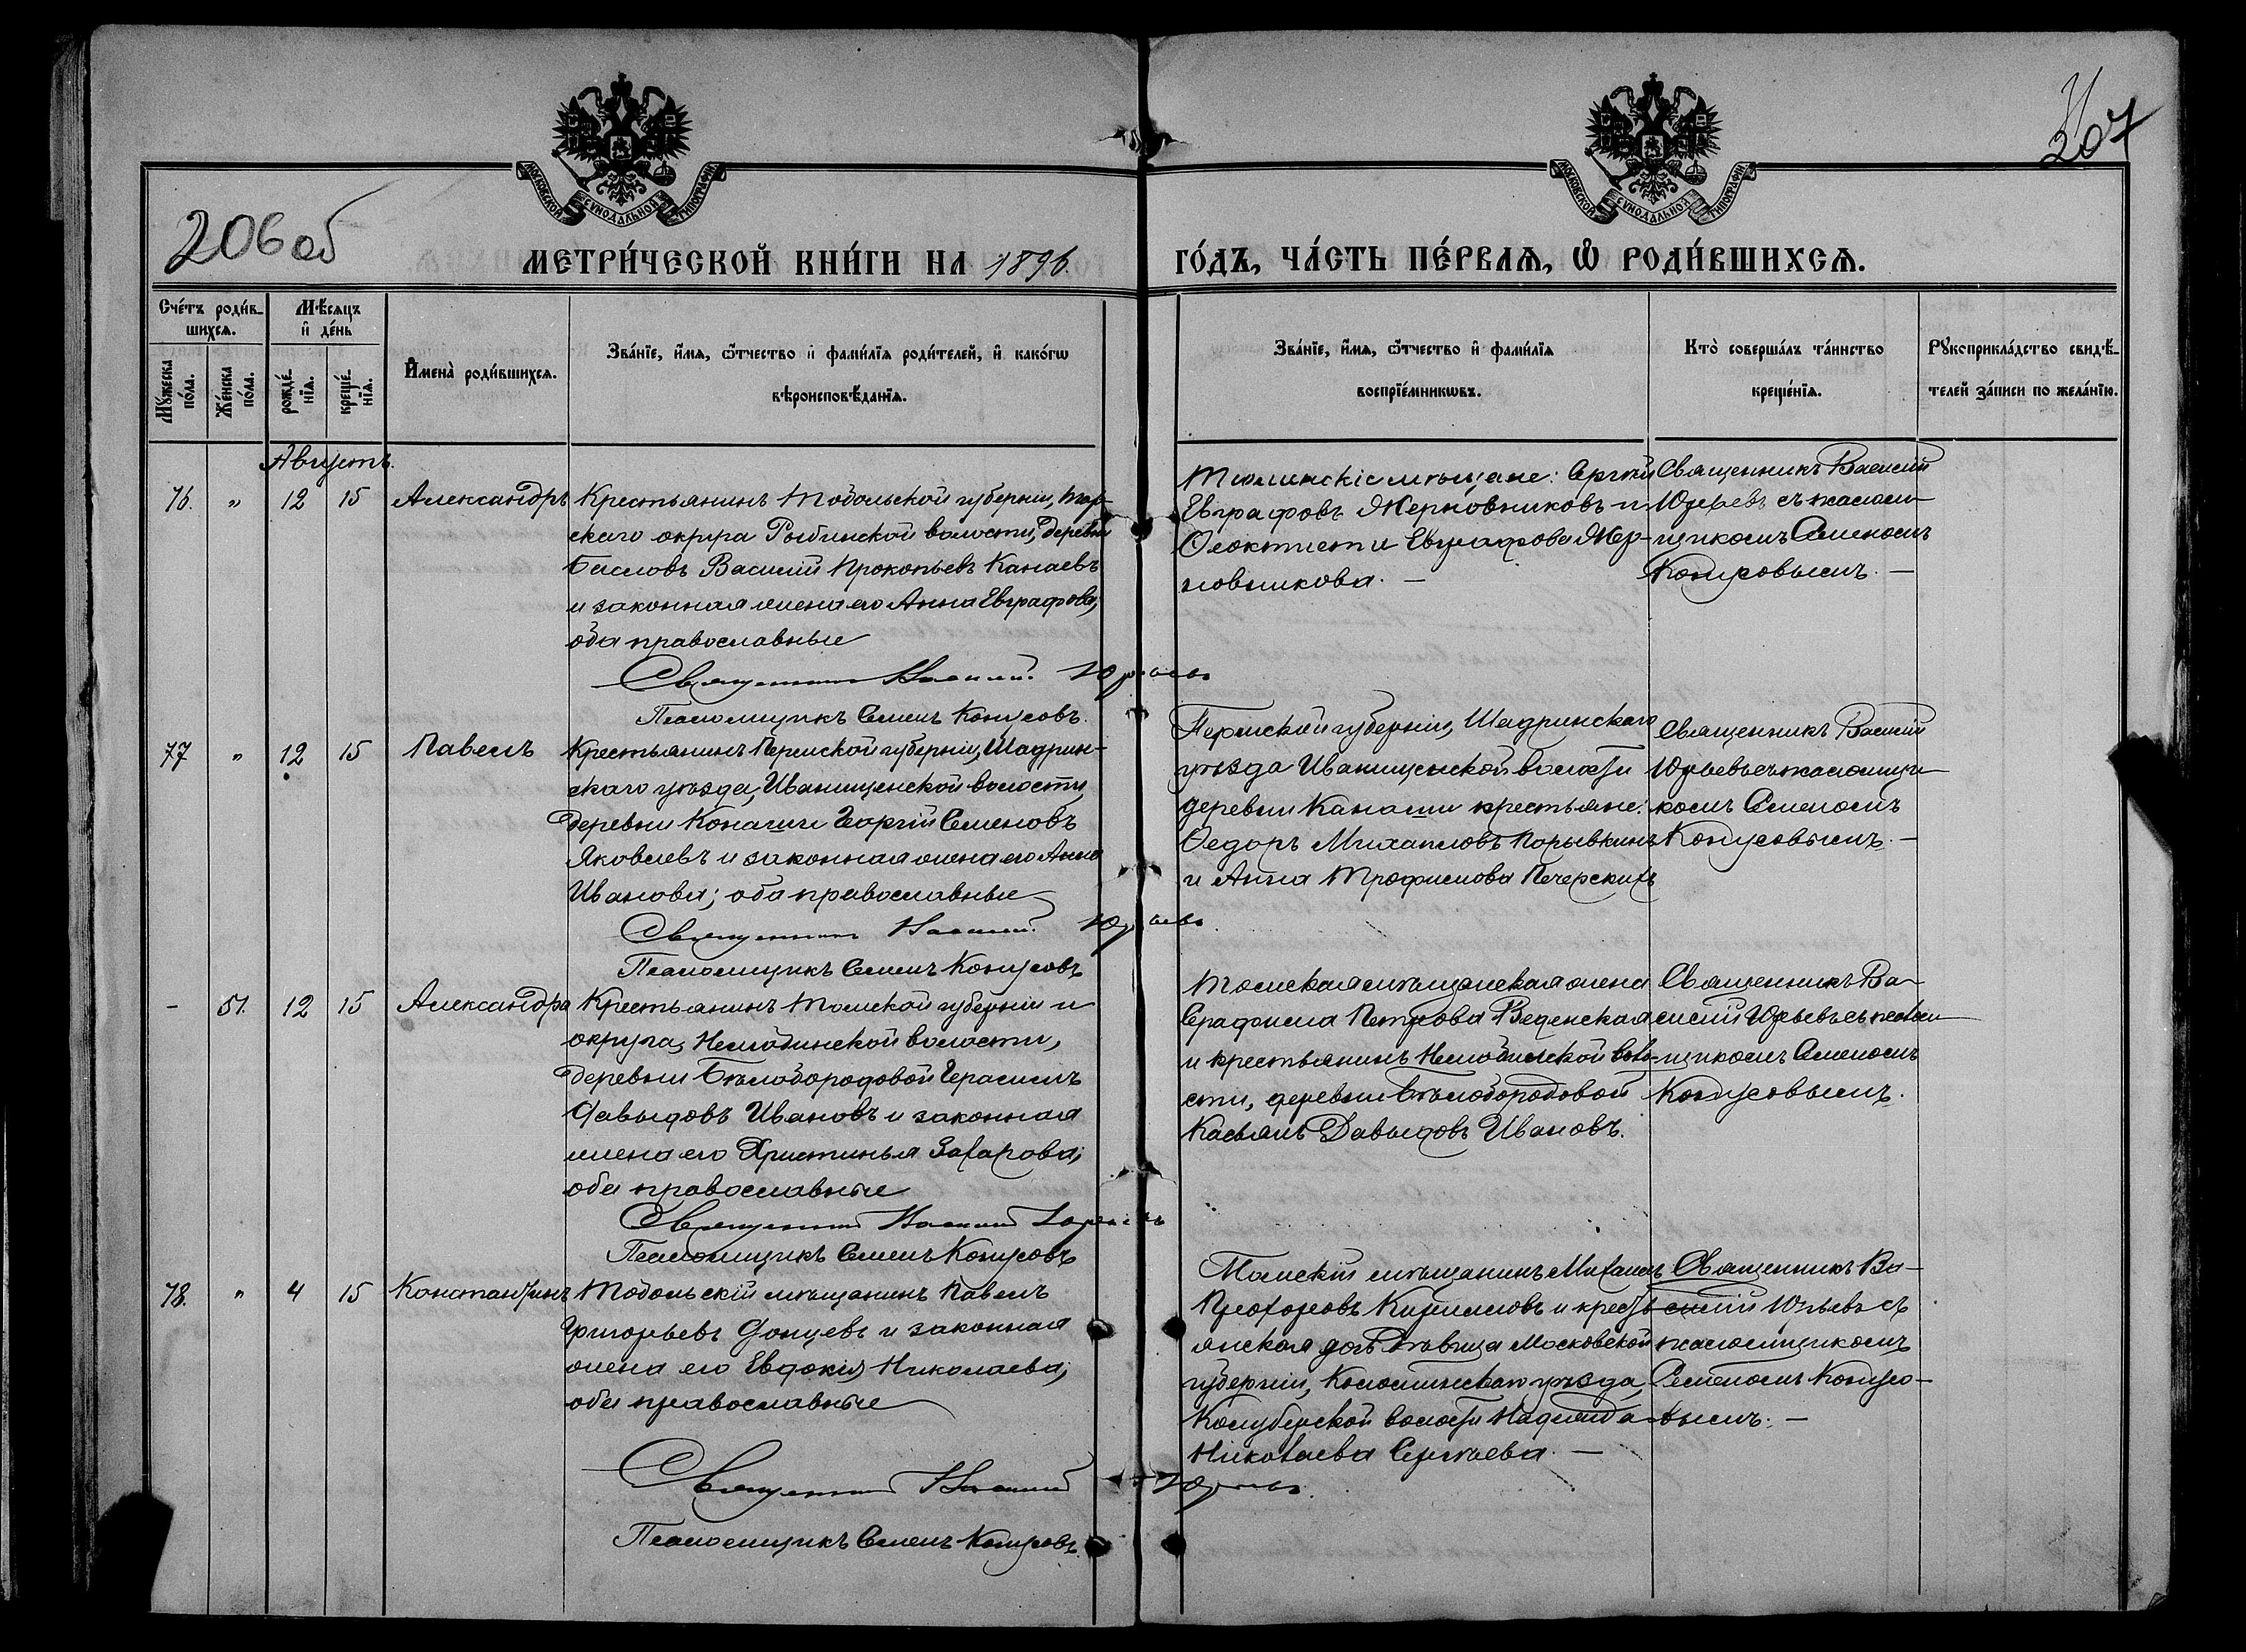 МОСКОВСКОЙ СѴНОДАЛЬНОЙ ТИПОГРАФІИ
МОСКОВСКОЙ СѴНОДАЛЬНОЙ ТИПОГРАФІИ
207
206 об
МЕТРИ́ЧЕСКОЙ КНИ́ГИ НА 1896.
ГО́ДЪ, ЧА́СТЬ ПЕ́РВАѦ, Ѽ РОДИ́ВШИХСѦ.
Сче́тъ роди́в-
шихсѧ.
Мꙋ́жеска по́ла.
Же́нска по́ла.
Мѣ́сѧцъ
и҆ де́нь
рожде́-
нїѧ.
креще́-
нїѧ.
И҆мена̀ роди́вшихсѧ.
Зва́нїе, и҆́мѧ, ѻ҆́тчество и҆ фами́лїѧ роди́телей, и҆ како́гѡ
вѣроисповѣ́данїѧ.
Зва́нїе, и҆́мѧ, ѻ҆́тчество и҆ фами́лїѧ
воспрїе́мникѡвъ.
Кто̀ соверша́лъ та́инство
креще́нїѧ.
Рꙋкоприкла́дство свидѣ́-
телей за́писи по жела́нїю.
Августъ.
76. " 12 15 Александръ
Крестьянинъ Тобольской губерніи, Тар-
скаго округа Рыбинской волости, деревни
Василій Прокопьевъ Канаевъ
и законная жена его Анна Евграфова,
оба православные
Священникъ Василій Юрьевъ
Псаломщикъ Семенъ Конусовъ.
Тюменскіе мѣщане: Сергѣй
Евграфовъ Жерновниковъ и
Ѳеоктиста Евграфова Жер-
новникова. —
Священникъ Василій
Юрьевъ съ псалом-
щикомъ Семеномъ
Конусовымъ. —
77 " 12 15 Павелъ
Крестьянинъ Пермской губерніи, Шадрин-
скаго уѣзда, Иванищенской волости,
деревни Конаши Георгій Семеновъ
Яковлевъ и законная жена его Анна
Иванова; оба православные
Священникъ Василій Юрьевъ
Псаломщикъ Семенъ Конусовъ
Пермской губерніи, Шадринскаго
уѣзда Иванищенской волости
деревни Канаши крестьяне:
Ѳедоръ Михаиловъ Порывкинъ
и Анна Трофимова Печерскихъ
Священникъ Василій
Юрьевъ съ псаломщи-
комъ Семеномъ
Конусовымъ. —
- 51. 12 15 Александра
Крестьянинъ Томской губерніи и
округа, Нелюбинской волости,
деревни Бѣлобородовой Герасимъ
Давыдовъ Ивановъ и законная
жена его Христинья Захарова;
оба православные
Священникъ Василій Юрьевъ
Псаломщикъ Семенъ Конусовъ
Томская мѣщанская жена
Серафима Петрова Веденская
и крестьянинъ Нелюбинской воло-
сти, деревни Бѣлобородовой
Касьянъ Давыдовъ Ивановъ.
Священникъ Ва-
силій Юрьевъ съ псалом-
щикомъ Семеномъ
Конусовымъ.
78. " 4 15 Константинъ
Тобольскій мѣщанинъ Павелъ
Григорьевъ Донцевъ и законная
жена его Евдокія Николаева;
оба православные
Священникъ Василій Юрьевъ.
Псаломщикъ Семенъ Конусовъ.
Томскій мѣщанинъ Михаилъ
Прохоровъ Кирилловъ и кресть-
янская дочь дѣвица Московской
губерніи, Коломенскаго уѣзда,
волости Надежда
Николаева Сергѣева. —
Священникъ Ва-
силій Юрьевъ съ
псаломщикомъ
Семеномъ Конусо-
вымъ. —